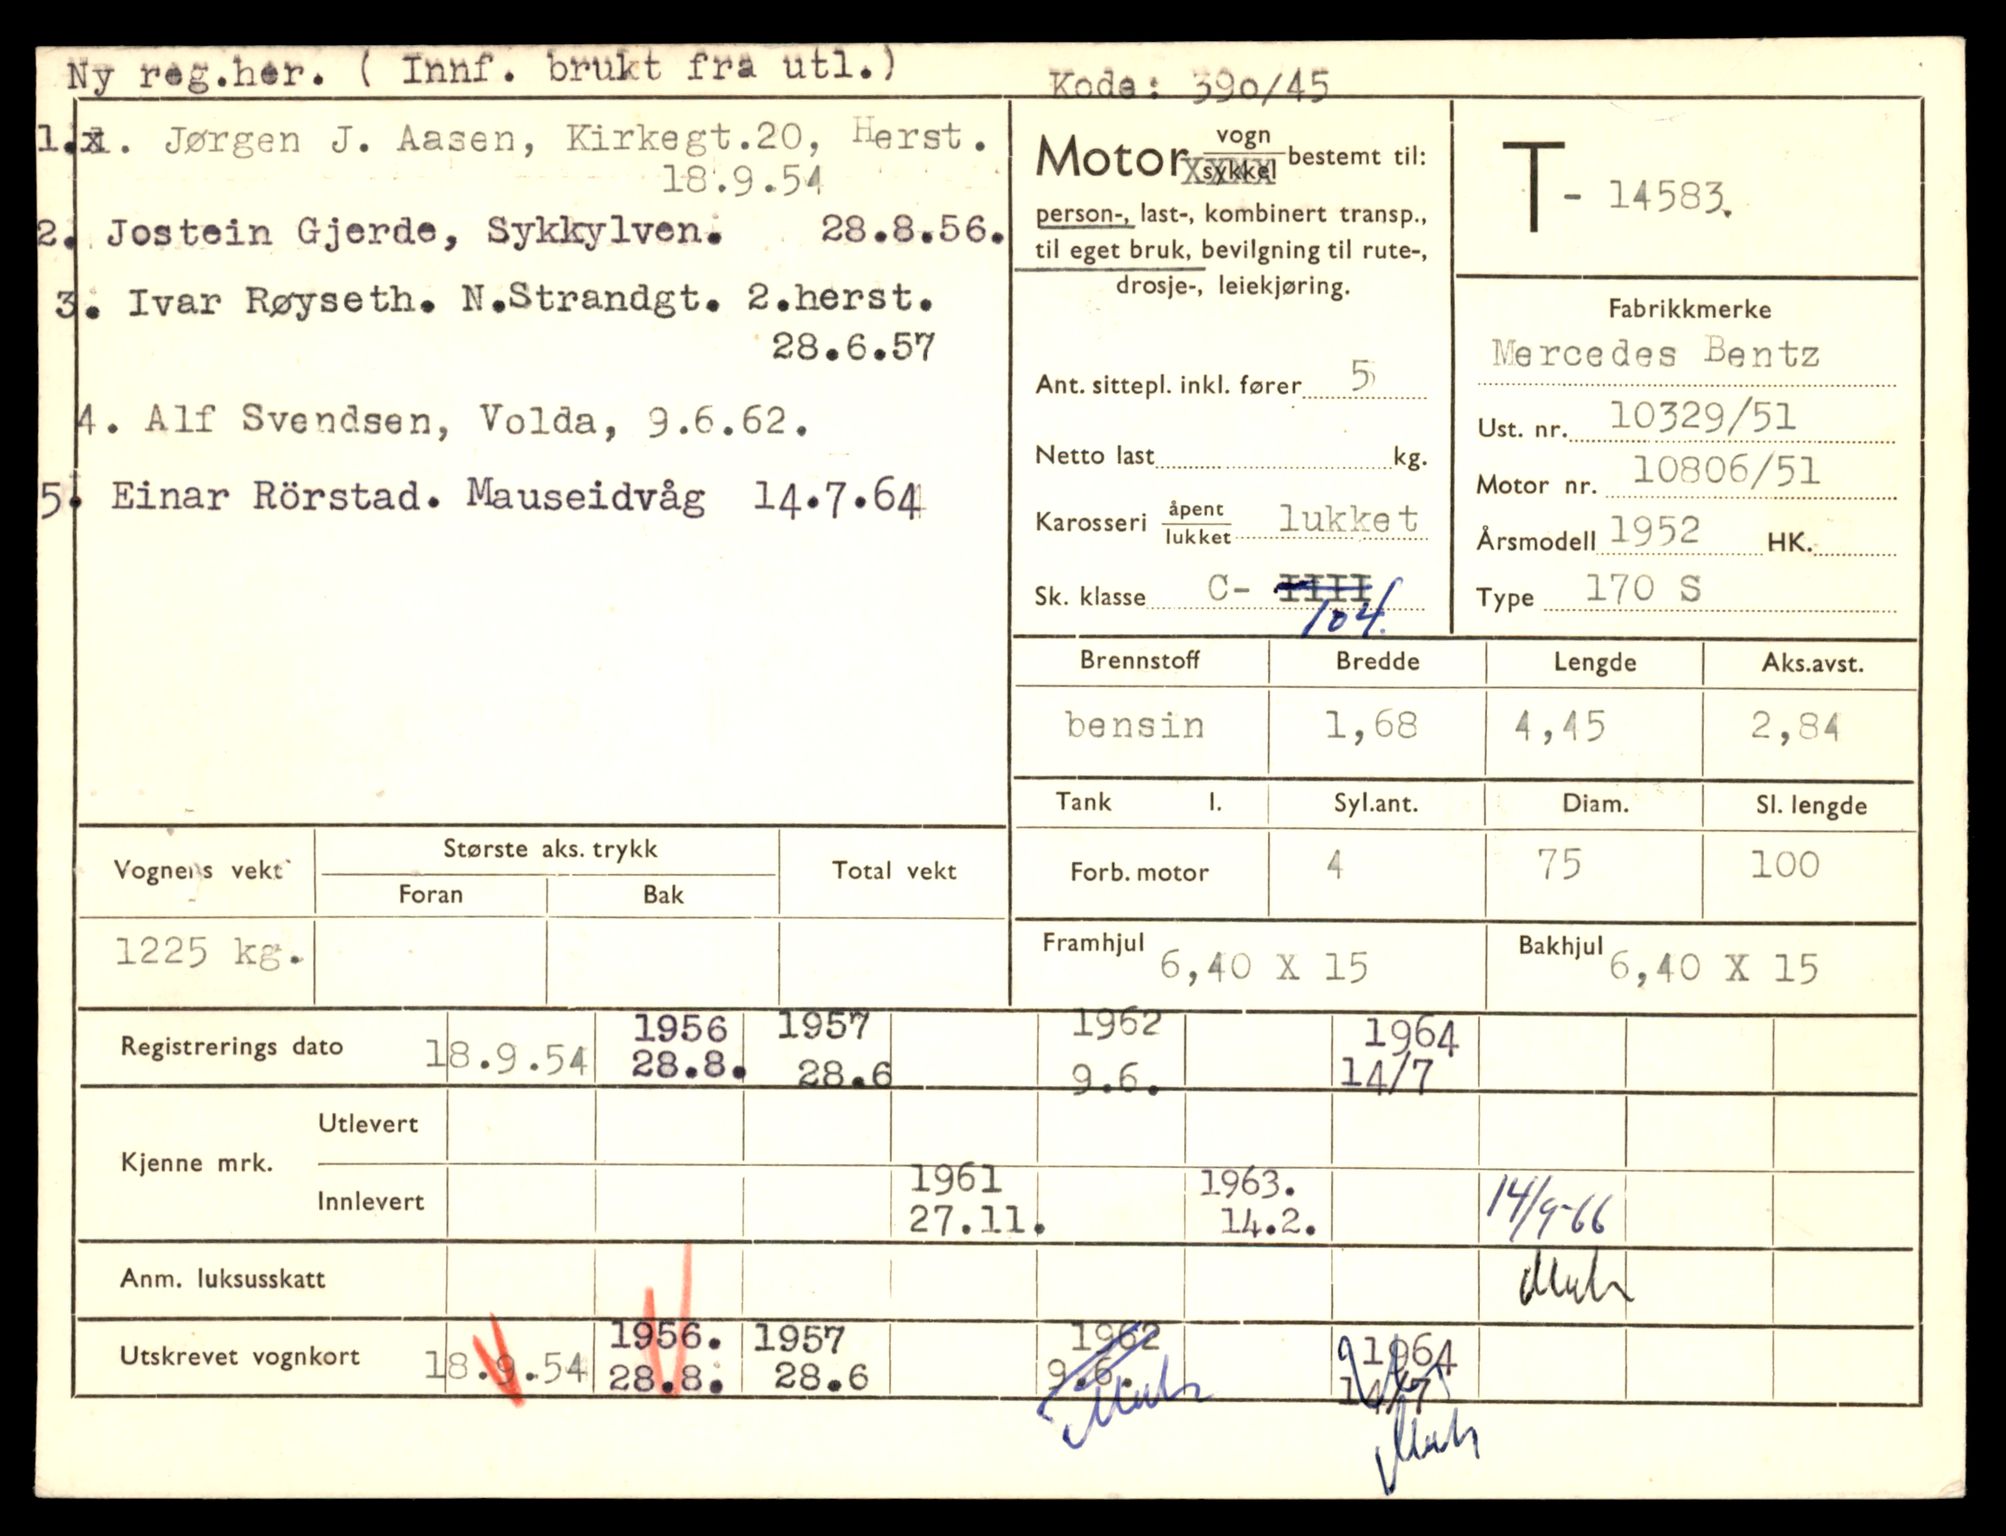 Ny reg.her. ( Innf. brukt fra utl.)
Kode: 390/45
1. Jørgen J. Aasen, Kirkegt.20, Herst.
18.9.54
2. Jostein Gjerde, Sykkylven. 28.8.56.
3. Ivar Røyseth. N.Strandgt. 2.herst.
28.6.57
4. Alf Svendsen, Volda, 9.6.62.
5. Einar Rörstad. Mauseidvåg 14.7.64
Motor vogn sykkel bestemt til:
person-, last-, kombinert transp.,
til eget bruk, bevilgning til rute-,
drosje-, leiekjøring.
Ant. sittepl. inkl. fører 5
Netto last kg.
Karosseri åpent lukket lukket
Sk. klasse C- IIII
104.
T- 14583.
Fabrikkmerke
Mercedes Bentz
Ust. nr. 10329/51
Motor nr. 10806/51
Årsmodell 1952 HK.
Type 170 S
Brennstoff Bredde Lengde Aks.avst.
bensin 1,68 4,45 2,84
Tank l. Syl.ant. Diam. Sl. lengde
Forb. motor 4 75 100
Framhjul 6,40 X 15 Bakhjul 6,40 X 15
Vognens vekt Største aks. trykk Total vekt
Foran Bak
1225 kg.
1956 1957 1962 1964
Registrerings dato 18.9.54 28.8. 28.6 9.6. 14/7
Kjenne mrk.
Utlevert
1961 1963.
Innlevert 27.11. 14.2. 14/9-66
Anm. luksusskatt
1956. 1957 1962 1964
Utskrevet vognkort 18.9.54 28.8. 28.6 9.6. 14/7